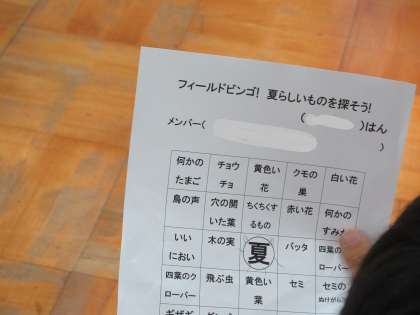 フィールドビンゴ! 夏らしいものを探そう!
( )はん
メンバー( )
何かの たまご
チョウ チョ
黄色い 花
クモの 巣
白い花
鳥の声
穴の開 いた葉
ちくちくす るもの
赤い花
何かの すみか
いい におい
木の実
夏
バッタ
四葉の ローバー
四葉のク ローバー
飛ぶ虫
黄色い 葉
セミ
セミの
ぬけがら
ギザギ